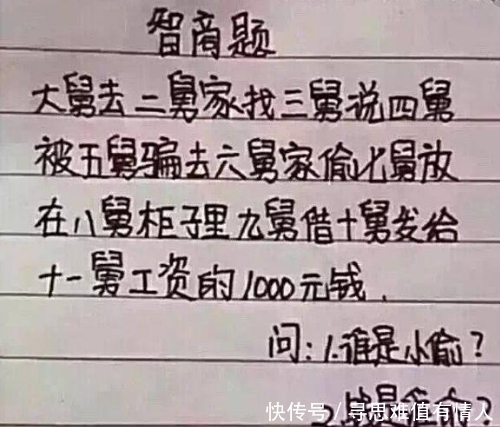 智商题
大舅去二舅家找三舅说四舅
被五舅骗去六舅家偷七舅放
在八舅柜子里九舅借十舅发给
十一舅工资的1000元钱.
问:1.谁是小偷?
2.
快传号/寻思难值有情人